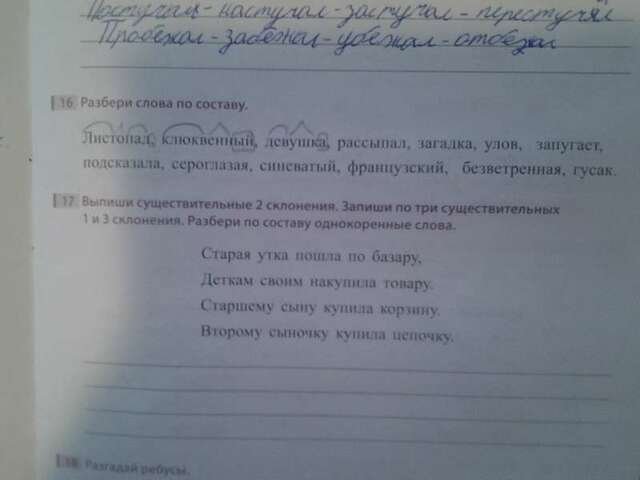 Постучал - настучал - застучал - перестучал
Пробежал - забежал - убежал - отбежал
16 Разбери слова по составу.
Листопад, клюквенный, девушка, рассыпал, загадка, улов, запугает,
подсказала, сероглазая, синеватый, французский, безветренная, гусак.
17 Выпиши существительные 2 склонения. Запиши по три существительных
1 и 3 склонения. Разбери по составу однокоренные слова.
Старая утка пошла по базару,
Деткам своим накупила товару.
Старшему сыну купила корзину.
Второму сыночку купила цепочку.
18 Разгадай ребусы.